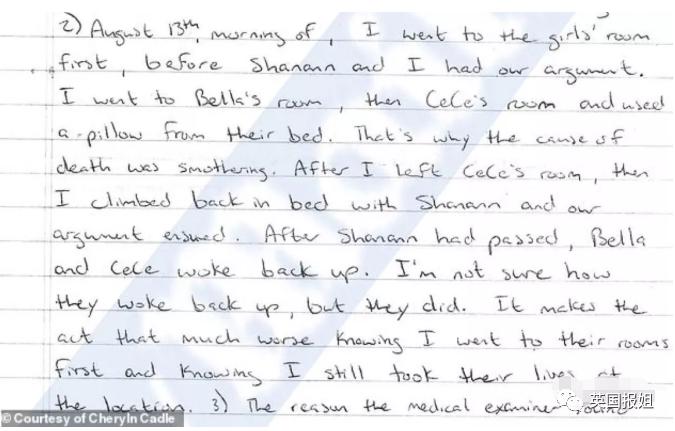 2) August 13th, morning of, I went to the girls' room
first, before Shanann and I had our argument.
I went to Bella's room, then CeCe's room and used
a pillow from their bed. That's why the cause of
death was smothering. After I left CeCe's room, then
I climbed back in bed with Shanann and our
argument ensued. After Shanann had passed, Bella
and CeCe woke back up. I'm not sure how
they woke back up, but they did. It makes the
act that much worse knowing I went to their rooms
first and knowing I still took their lives at
the location. 3) The reason the medical examiner found
© Courtesy of Cheryln Cadle
英国报姐